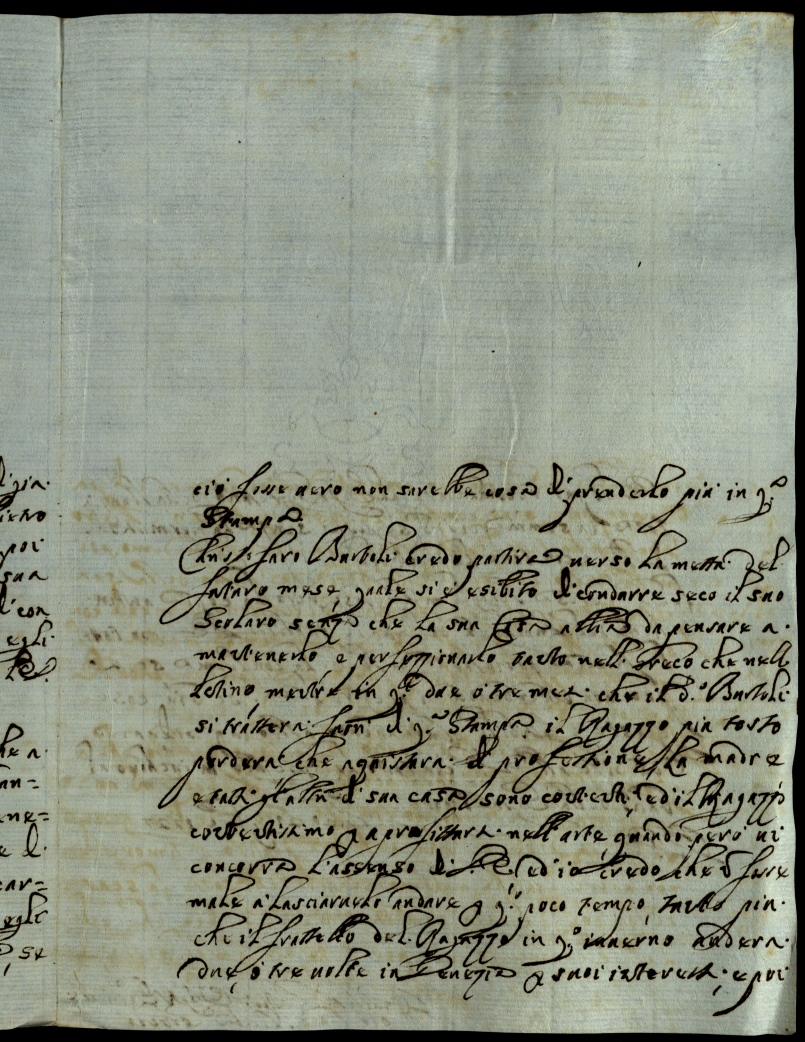 ciò fosse vero non sarebbe cosa di prenderlo più in q.a
Stampa
Bartoli credo partire verso la metta del
futuro mese quale si è esibito di condurre seco il suo
Scolaro senza che la sua abbia da pensare a
mantenerlo e perfezzionarlo tanto nell Greco che nell
Letino mentre in q.i due o tre mesi che il d.o Bartoli
si tratterà fuori di q.a Stampa il Ragazzo più tosto
perderà che aquisterà di professione, La madre
e tutti gl'altri di sua casa sono contenti, ed il Ragazzo
contentissimo p aprofittarsi nell'arte quando però vi
concorra l'assenso di ed io credo che fosse
male a lasciarlo andare p q.l poco tempo, tutto più
che il frattello del Ragazzo in q.o inverno anderà
due, o tre volte in Venezia p suoi interessi, e poi
lì con
egli
che a
an=
ene=
e di
car=
egli
se
poi
sua